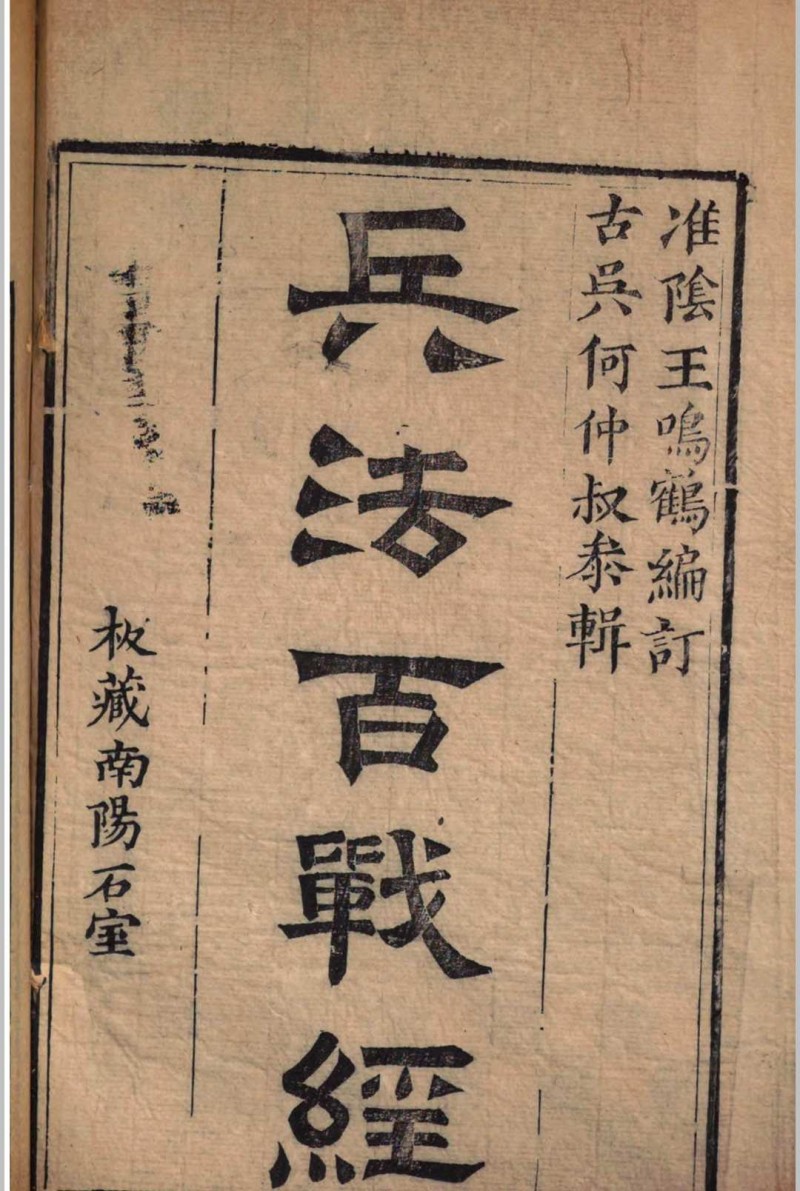 淮陰王鳴鶴編訂
古吳何仲叔叅輯
兵法百戰經
板藏南陽石室